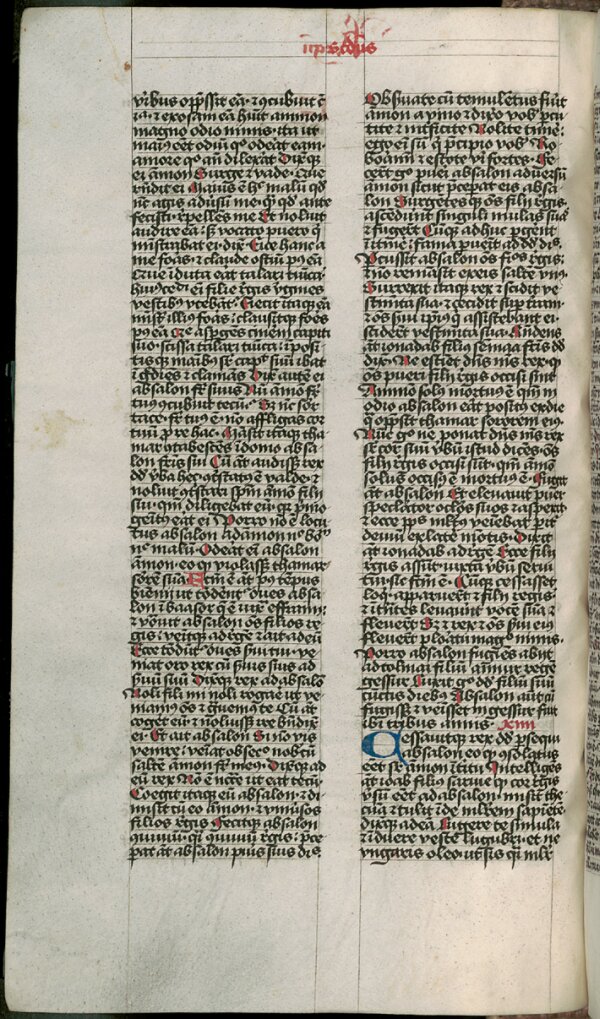 viribus opp̄ssit eā · ⁊ ꝯcubuit c̄
ea · ⁊ exosam eā h̄uit ammon
magno odio nimis · ita ut
maius eēt odiū qͦ oderat eam ·
amore qͦ an̄ dilexāt Dixitqꝫ
ei amon Surge ⁊ vade · Que
rn̄dit ei Maius ē hͦ malū qd̓
nc̄ agis adūsū me · qͣ qd̓ ante
fecisti · expelles me Et noluit
audire eā · sꝫ vocato puero qͥ
mīstrabat ei · dix̄ Eice hanc a
me foras · ⁊ claude ostiū pꝰ eā
Que īduta erat talari tunica ·
huiuscēdi em̄ filie regis v̓gines
vestibꝰ vtebāt Eiecit itaqꝫ eā
mīst̄ illiꝰ foras · clausitqꝫ fores
pꝰ eā Que asp̄ges cinerē capiti
suo · scissa talari tunica · īposi
tisqꝫ maībꝰ sr̄ caput suū · ibat
īg̓diēs ⁊ clamās Dix̄ autē ei
absalon fr̄ suus Nū amō fr̄
tuꝰ ꝯcubuit tecū Sꝫ nc̄ soror
tace · fr̄ tuꝰ ē · nō affligas cor
tuū ꝓ re hac · Māsit itaqꝫ tha
mar ꝯtabescēs ī domo absa
lon fr̄is sui Cū āt audissꝫ rex
dd̓ v̓ba hec · ꝯtstatꝰ ē valde · ⁊
noluit ꝯtstari spm̄ amō filii
sui · qm̄ diligebat eū · qꝛ p̓mo
genitꝰ eāt ei Porro nō ē locu
tus absalon ad amon nͨ bonū
nͨ malū · Oderat ei absalon
amon · eo qͥ violassꝫ thamar
sororē suā Fctm̄ ē āt pꝰ tēpus
bienii ut tōderent oues absa
lon ī baasor que ē iux̄ effraim ·
⁊ vocauit absalon oēs filios re
gis · venitqꝫ ad regē ⁊ ait ad eū
Ecce tōdūt oues sui tui · ve
niat oro rex cū suis suis ad
s̓uū suū Dixitqꝫ rex ad absalō
Noli fili mi noli rogare ut ve
niamꝰ oēs ⁊ ḡuemꝰ te Cū āt
cogēt eū · ⁊ noluissꝫ ire bn̄dix̄
ei · Et ait absalon Si nō vis
venire · veniat obsecro nobcū
saltē amon fr̄ meꝰ Dixitqꝫ ad
eū rex Nō ē nc̄ce ut eat tecū ·
Coegit itaqꝫ eū absalon · ⁊ di
misit cū eo amon · ⁊ vniūsos
filios regis Fecitqꝫ absalon
ꝯuiuiū · qͣ ꝯuiuiū regis · p̄ce
perat āt absalon pueris suis dicēs
iiꝰ regū
Obseruate cū temulētus fuerit
amon a vino · ⁊ dixo vob̄ · pcu
tite ⁊ interficite Nolite time ·
ego ei sū qͥ p̓cipio vob̄ · Ro
borāmī ⁊ estote viri fortes · Fe
cert̄ gͦ pueri absalon aduersū
amon sicut p̄cepat eis absa
lon Surgētesqꝫ oēs filii regis ·
ascēdūnt singuli mulas suas
⁊ fugert̄ Cūqꝫ adhuc pgent
ī itinē · fama puenit ad dd̓ dicēs ·
Percussit absalon oēs filios regis ·
⁊ nō remāsit ex eis saltē vnꝰ
Surrexit itaqꝫ rex ⁊ scidit ve
stimta sua · ⁊ cecidit sup terram ·
⁊ oēs sui ip̄ius qͥ assistebant ei
sciderūt vestimta sua Rn̄dens
āt ionadab filius semaa fr̄is dd̓
dix̄ · Ne estimet dn̄s mꝰ rex · qͥ
oēs pueri filii regis occisi sint
Ammo solꝰ mortuꝰ ē qm̄ in
odio absalon eāt positꝰ ex die
qͣ opp̄ssit thamar sororem eiꝰ ·
Nūc gͦ ne ponat dn̄s mꝰ rex
sr̄ cor suū v̓bū istud dicēs · oēs
filii regis occisi sūt · qm̄ amō
solus occisꝰ ē ⁊ mortuꝰ ē · Fugit
āt absalon Et eleuauit puer
speculator oclos suos ⁊ aspexit ·
⁊ ecce ppl̄s ml̄tꝰ veniebat p it̄
deuiū ex latē montis · Dixit
āt ionadab ad regē Ecce filii
regis assūt · iuxta v̓bū serui
tui · sic fctm̄ ē · Cūqꝫ cessasset
loqͥ · apparuerūt ⁊ filii regis ·
⁊ ītrātes leuauint vocē suā ⁊
fleuerūt Sꝫ ⁊ rex ⁊ oēs sui eiꝰ
fleuerūt ploratu magͦ nimis ·
Porro absalon fugiēs abiit
ad tolmai filiū ammiur regē
gessur Luxit gͦ dd̓ filiū suū
cūctis diebꝰ Absalon aut cū
fugissꝫ ⁊ venisset in gessur · fuit
ibi tribus annis · xiiii
Cessauitqꝫ rex dd̓ p̄sequi
absalon eo qͥ ꝯsolatus
eēt sr̄ amon īteritu Intelliges
āt ioab filius saruie qͥ cor regis
v̓sū eēt ad absalon · misit the
cuā ⁊ tulit īde mlr̄em sapiētē
dixitqꝫ ad eā Lugere te simula
⁊ īduere veste lugubri · et ne
vngaris oleo · ut sis qͣi mlr̄